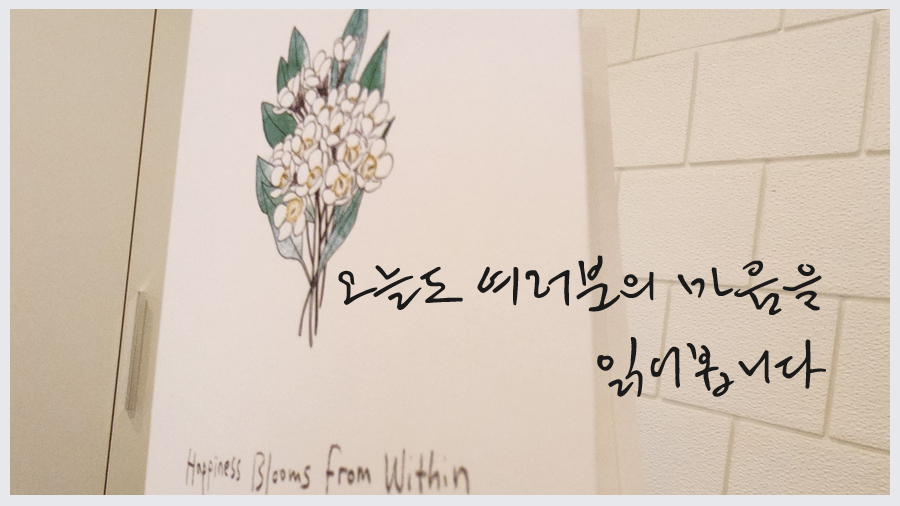 오늘도 여러분의 마음을
읽어봅니다
Happiness Blooms From Within